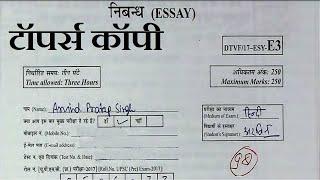 निबन्ध (ESSAY)
टॉपर्स कॉपी
DTVF/17-ESY-E3
निर्धारित समय: तीन घंटे
Time allowed: Three Hours
अधिकतम अंक: 250
Maximum Marks: 250
नाम (Name): Arvind Pratap Singh
क्या आप इस बार मुख्य परीक्षा दे रहे हैं?
मोबाइल नं. (Mobile No.):
ई-मेल पता (E-mail address):
टेस्ट नं. एवं दिनांक (Test No. & Date):
रोल नं. [यू.पी.एस.सी. (प्रा.) परीक्षा-2017] [Roll No. UPSC (Pre) Exam-2017]:
परीक्षा का माध्यम
(Medium of Exam): हिन्दी
विद्यार्थी के हस्ताक्षर
(Student's Signature):
98